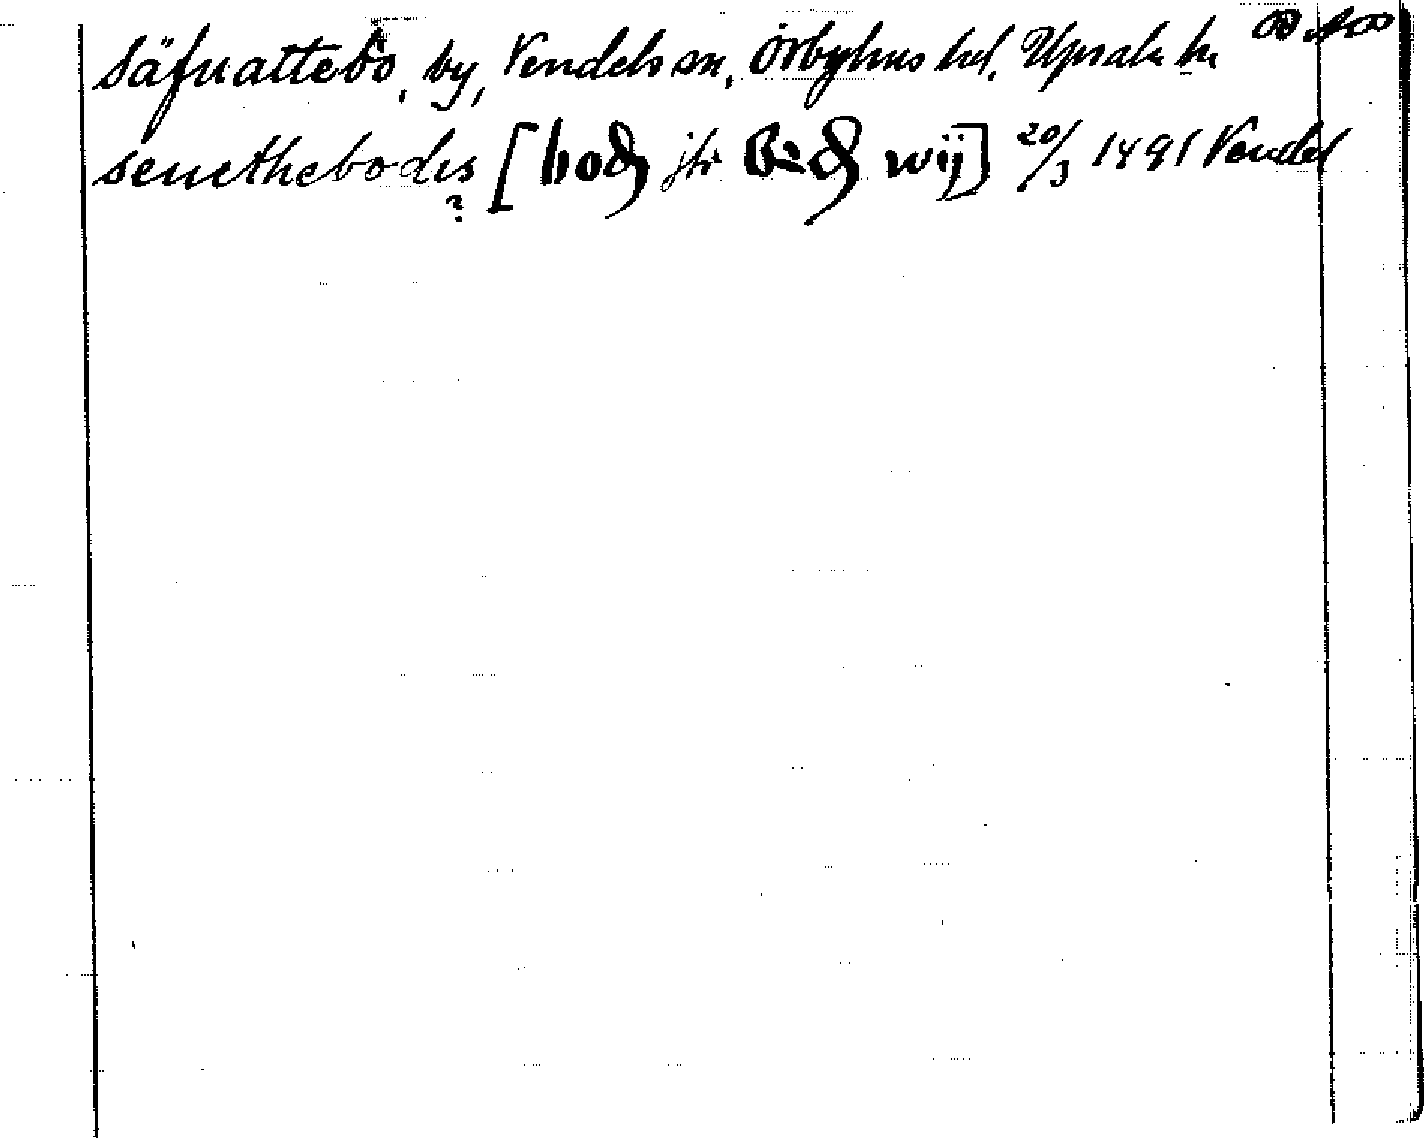 Säfnattebo, by, Vendels sn, Örbyhus hd, Upsala ln
senethebodes [bod jfr wij] 20/3 1491 Vendel
?